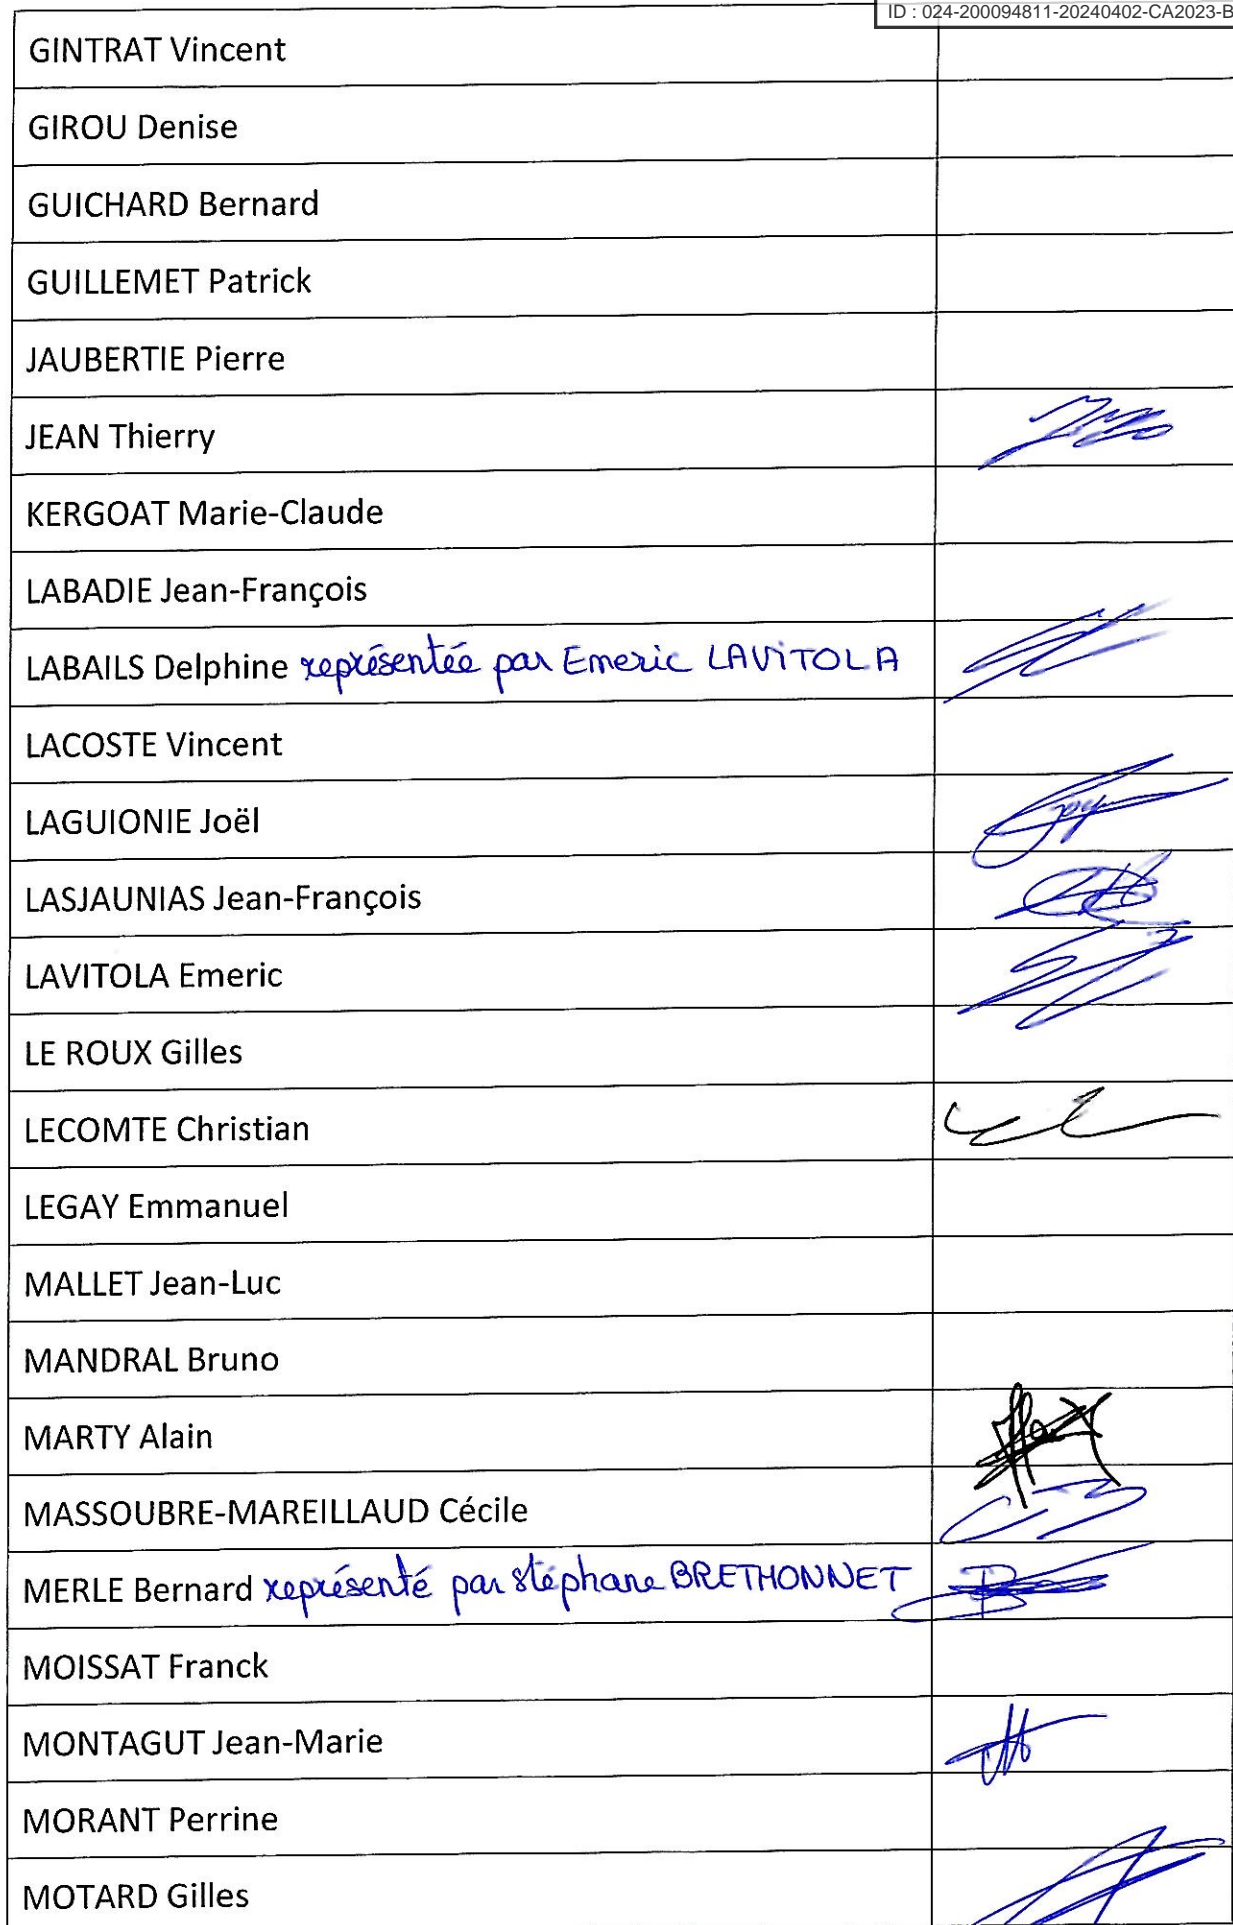 ID : 024-200094811-20240402-CA2023-B
GINTRAT Vincent
GIROU Denise
GUICHARD Bernard
GUILLEMET Patrick
JAUBERTIE Pierre
JEAN Thierry
KERGOAT Marie-Claude
LABADIE Jean-François
LABAILS Delphine représentée par Emeric LAVITOLA
LACOSTE Vincent
LAGUIONIE Joël
LASJAUNIAS Jean-François
LAVITOLA Emeric
LE ROUX Gilles
LECOMTE Christian
LEGAY Emmanuel
MALLET Jean-Luc
MANDRAL Bruno
MARTY Alain
MASSOUBRE-MAREILLAUD Cécile
MERLE Bernard représenté par Stéphane BRETHONNET
MOISSAT Franck
MONTAGUT Jean-Marie
MORANT Perrine
MOTARD Gilles